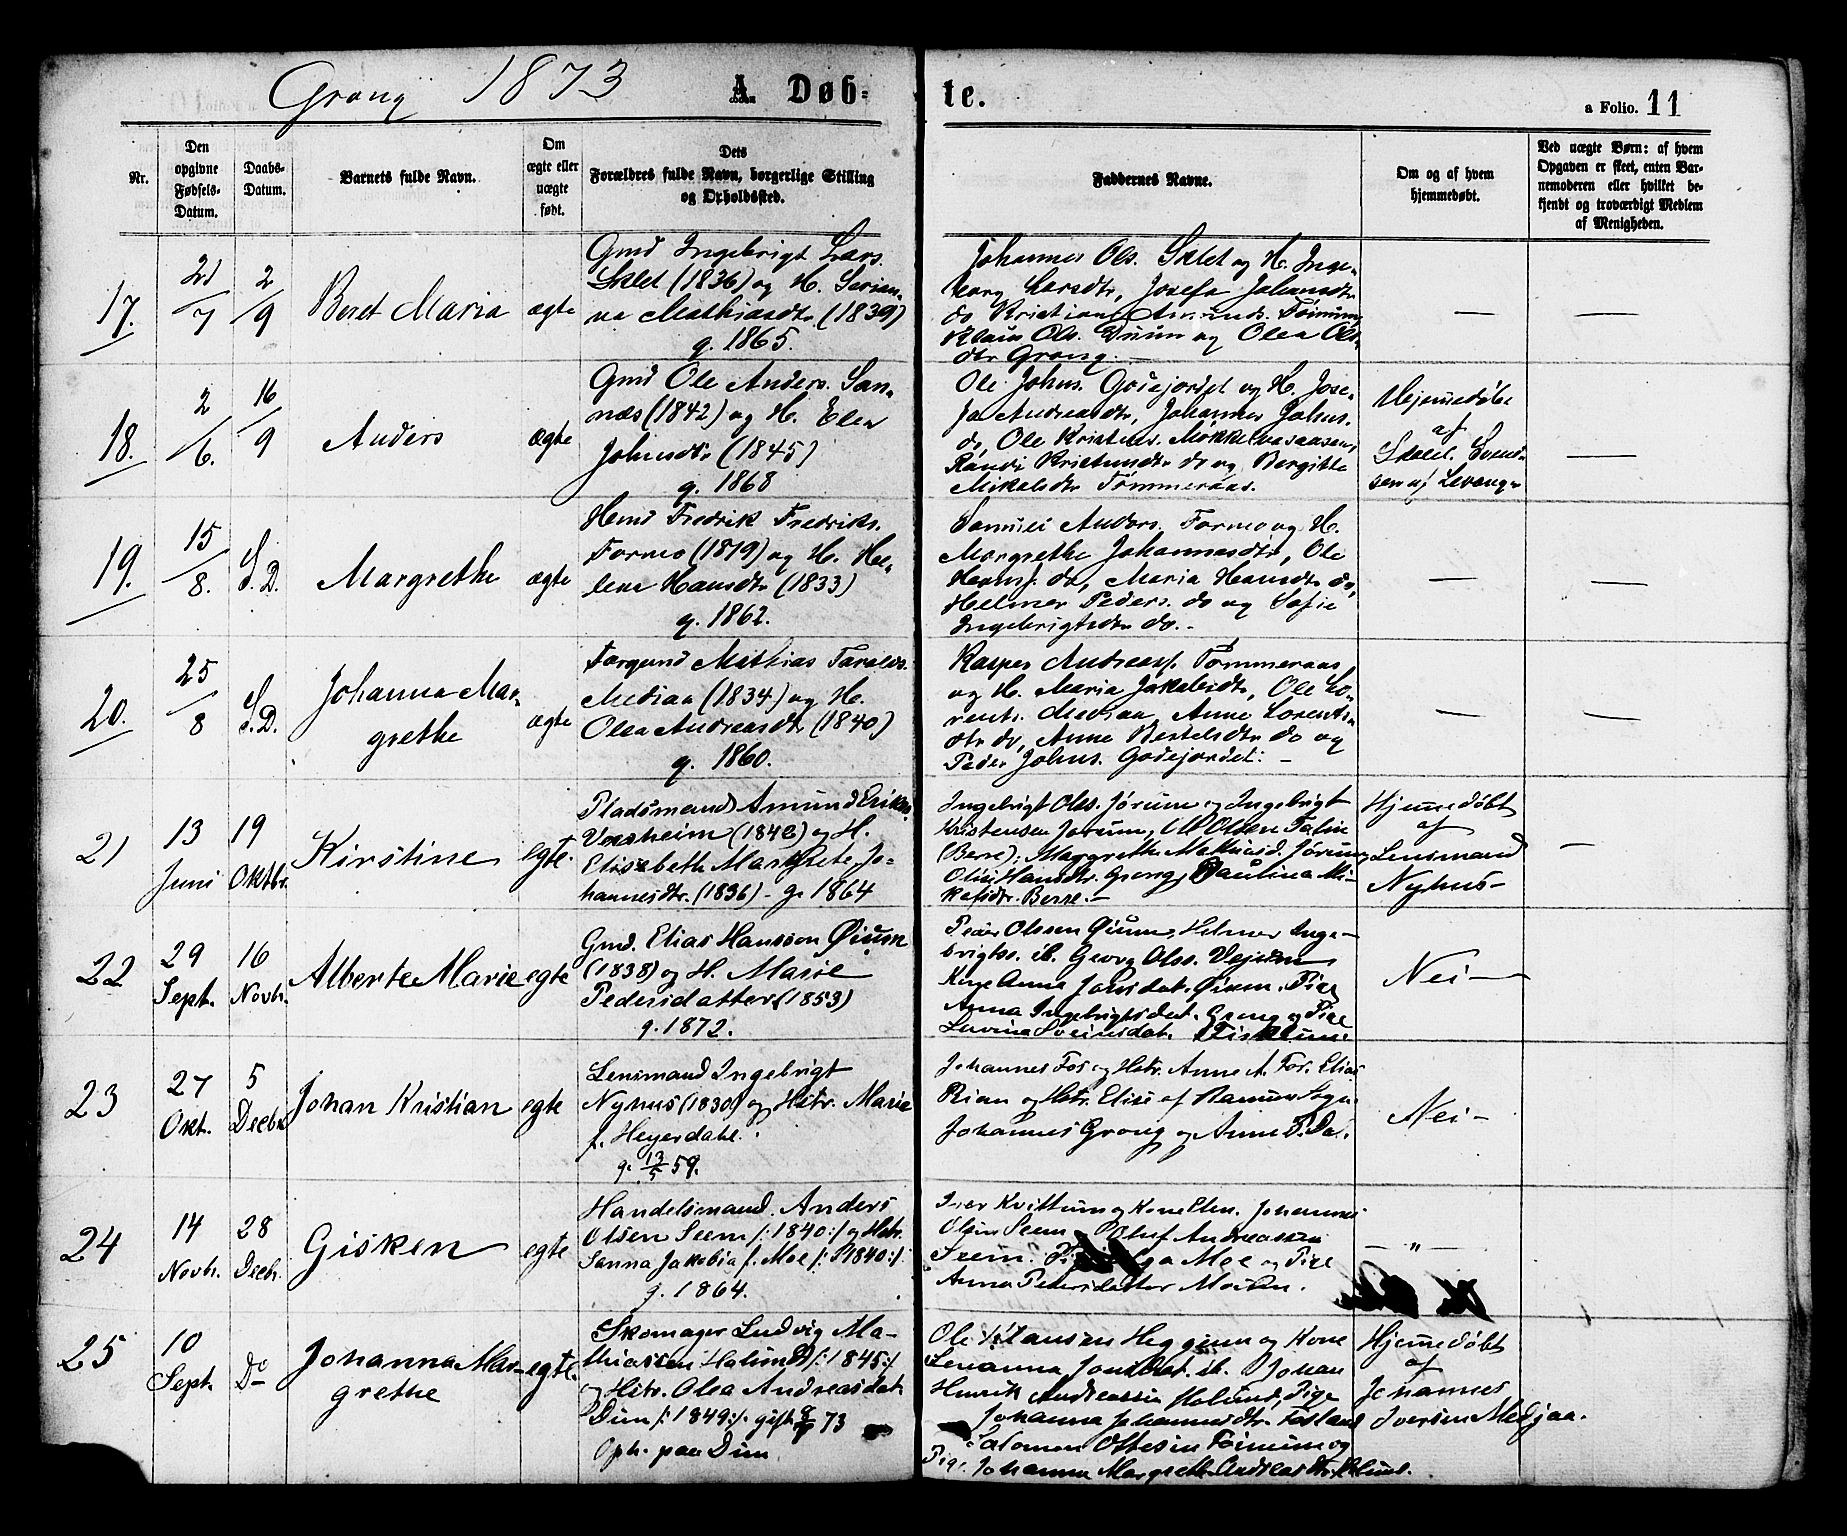 Grong 1873 A. Døb=te.
a Folio. 11
Nr.
Den opgivne Fødsels-Datum.
Daabs-Datum.
Barnets fulde Navn.
Om ægte eller uægte født.
Dets Forældres fulde Navn, borgerlige Stilling og Opholdssted.
Faddernes Navne.
Om og af hvem hjemmedøbt.
Ved uægte Børn: af hvem Opgaven er skeet, enten Barnemoderen eller hvilket bekjendt og troværdigt Medlem af Menigheden.
17. 21/7 2/9 Beret Maria ægte
Gmd Ingebrigt Lars.
Sklet (1836) og H. Serian-
na Mathiasdtr. (1839)
g. 1865.
Johannes Ols. Sklet og H. Inge-
borg Larsdtr, Josefa Johansdtr
do Kristian Amunds.
Klaus Ols. Duun og Olea Ols-
dtr Grong. -
— —
18. 2/6. 16/9 Anders ægte
Gmd Ole Anders. San-
næs (1842) og H. Elen
Johnsdtr (1845)
g. 1868
Ole Johns. Godejordet og H. Jose-
fa Andreasdtr, Johannes Johns.
do, Ole Kristens. Møkkelvasaasen,
Randi Kristensdtr do og Bergitte
Mikalsdtr Tømmeraas.
Hjemmedøbt
af
Skoleh. Svend-
sen af Levanger
—
19. 15/8. S.D. Margrethe ægte
Hmd Fredrik Fredriks.
Formo (1819) og H. He-
lena Hansdtr (1833)
g. 1862.
Samuel Anders. Formo og H.
Margrethe Johannesdtr, Ole
Hansf. do, Maria Hansdtr do,
Helmer Peders. do og Sofie
Ingebrigtsdtr do. -
— —
20. 25/8 S.D. Johanna Mar-
grethe ægte
Forgmd Mathias Taralds.
Mediaa (1834) og H.
Olea Andreasdtr (1840)
g. 1860.
Kasper Andreasf. Tømmeraas
og H. Maria Jakobsdtr, Ole Lo-
rents. Mediaa, Anne Lorents-
dtr do, Anne Bertelsdtr do og
Peder Johns. Godejordet: -
— —
21 13 Juni 19 Oktbr. Kirstine egte.
Pladsmand Amund Eriks.
Vexheim (1842) og H.
Elisabeth Margrete Jo-
hannesdtr. (1836) - g. 1864
Ingebrigt Ols. Jørum og Ingebrigt
Kristensen Jørum, Ol Olsen Fatin
(Berre); Margrethe Mathiasd. Jørum,
Olise Hansdtr. Grong, Paulina Mi-
kalsdtr. Berre. -
Hjemmedøbt
af
Lensmand
Nyhus -
—
22 29 Sept. 16 Novbr. Alberte Marie egte
Gmd. Elias Hansson Øium
(1838) og H. Marie
Pedersdatter (1853)
g. 1872.
Peder Olssen Øium, Helmer Inge-
brigtss. ib. Georg Olss. Vejum
Kone Anna Jonsdat. Øium. Pige
Anna Ingebrigtsdat. Grong og Pige
Lovina Sveinsdat. Fiskum.
Nei -
23 27 Okt. 5 Decbr. Johan Kristian egte
Lensmand Ingebrigt
Nyhus (1830) og Hstr. Marie
f. Heyerdahl.
g. 13/5 59.
Johannes Fos og Hstr. Anne A. Fos. Elias
Rian og Hstr. Elise af Ranem Sogn.
Johannes Grong og Anne P. Do.
Nei -
24 14 Novbr. 28 Decbr. Gisken egte
Handelsmand. Anders
Olsen Seem /: 1840 :/ og Hstr.
Sanna Jakobia f. Moe /: 1840 :/
g. 1864.
Iver Kvittum og Kone Elen. Johannes
Olsen Seem. Oluf Andreassen
Seem. Moe og Pige
Anna Pedersdatter Moen.
— „ —
25 10 Sept. Do Johanna Mar-
grethe egte.
Skomager Ludvig Ma-
thiassen Holund /: 1845 :/
og Hstr. Olea Andreasdat.
Duun /: 1849 :/. gift 73
Oph. paa Duun
Ole Hansen Heggum og Kone
Lenanna Jonsdat. ib. Johan
Henrik Andreassen Holund, Pige
Johanna Johannesdtr. Fosland
Salomon Ottesen og
Pige Johanna Margrethe Andreasdtr.
Hjemmedøbt
af
Johannes
Iversen Medjaa.